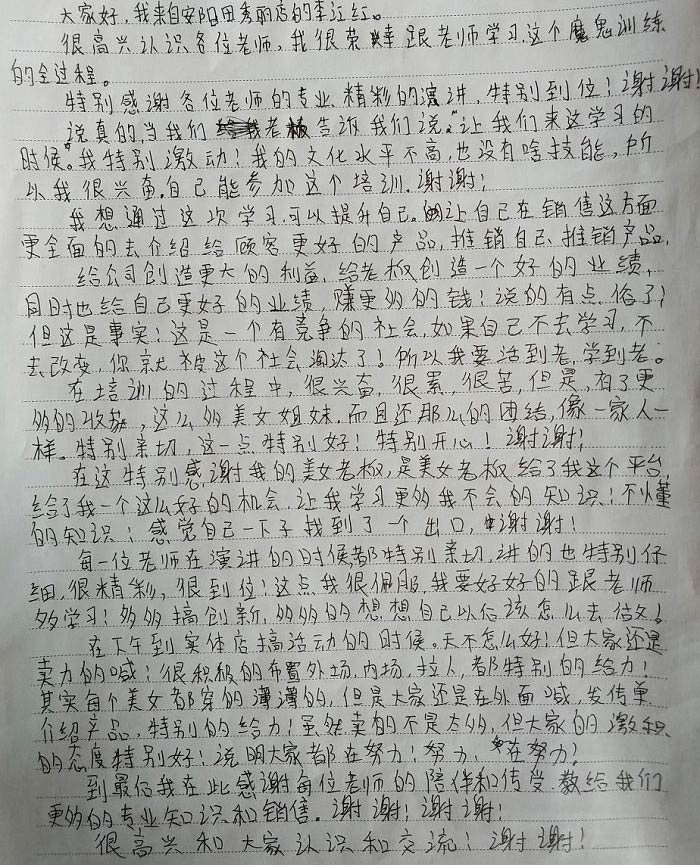 大家好，我来自安阳田秀丽店的李江红。
很高兴认识各位老师，我很荣幸跟老师学习，这个魔鬼训练
的全过程。
特别感谢各位老师的专业、精彩的演讲，特别到位！谢谢！
说真的，当我们老板告诉我们说，“让我们来这学习的
时候”。我特别激动！我的文化水平不高，也没有啥技能，所
以我很兴奋，自己能参加这个培训，谢谢！
我想通过这次学习，可以提升自己。让自己在销售这方面
更全面的去介绍给顾客更好的产品，推销自己、推销产品，
给公司创造更大的利益，给老板创造一个好的业绩，
同时也给自己更好的业绩，赚更多的钱！说的有点俗了！
但这是事实！这是一个有竞争的社会，如果自己不去学习，不
去改变，你就被这个社会淘汰了！所以我要活到老，学到老。
在培训的过程中，很兴奋，很累，很苦，但是，有了更
多的收获，这么多美女姐妹，而且还那么的团结，像一家人一
样。特别亲切，这一点特别好！特别开心！谢谢！
在这特别感谢我的美女老板，是美女老板给了我这个平台，
给了我一个这么好的机会，让我学习更多我不会的知识！不懂
的知识！感觉自己一下子找到了一个出口，谢谢！
每一位老师在演讲的时候都特别亲切，讲的也特别仔
细，很精彩，很到位！这点我很佩服，我要好好的跟老师
多学习！多多搞创新，多多的想想自己以后该怎么去
在下午到实体店搞活动的时候。天不怎么好！但大家还是
卖力的喊！很积极的布置外场，内场，拉人，都特别的给力！
其实每个美女都穿的薄薄的，但是大家还是在外面喊，发传单
介绍产品，特别的给力！虽然卖的不是太多，但大家的激积
的态度特别好！说明大家都在努力！努力，在努力！
到最后我在此感谢每位老师的陪伴和传受，教给我们
更多的专业知识和销售。谢谢！谢谢！谢谢！
很高兴和大家认识和交流！谢谢！